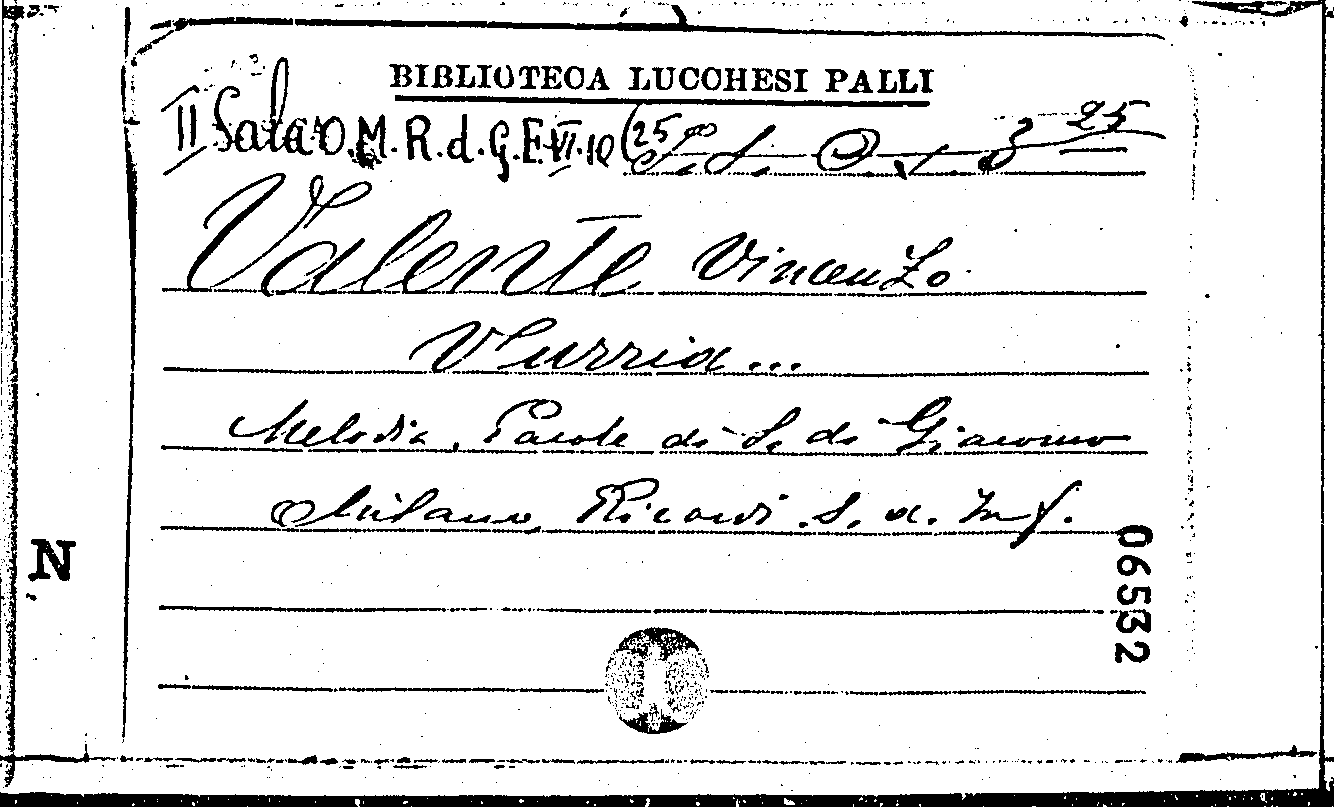 BIBLIOTECA LUCCHESI PALLI
II Sala O.M.R.d.G.E.VI.10 (25
25
Valente Vincenzo
Vurria...
Melodia. Parole di S. di Giacomo
Milano, Ricordi. S. a. In f.
06532
N